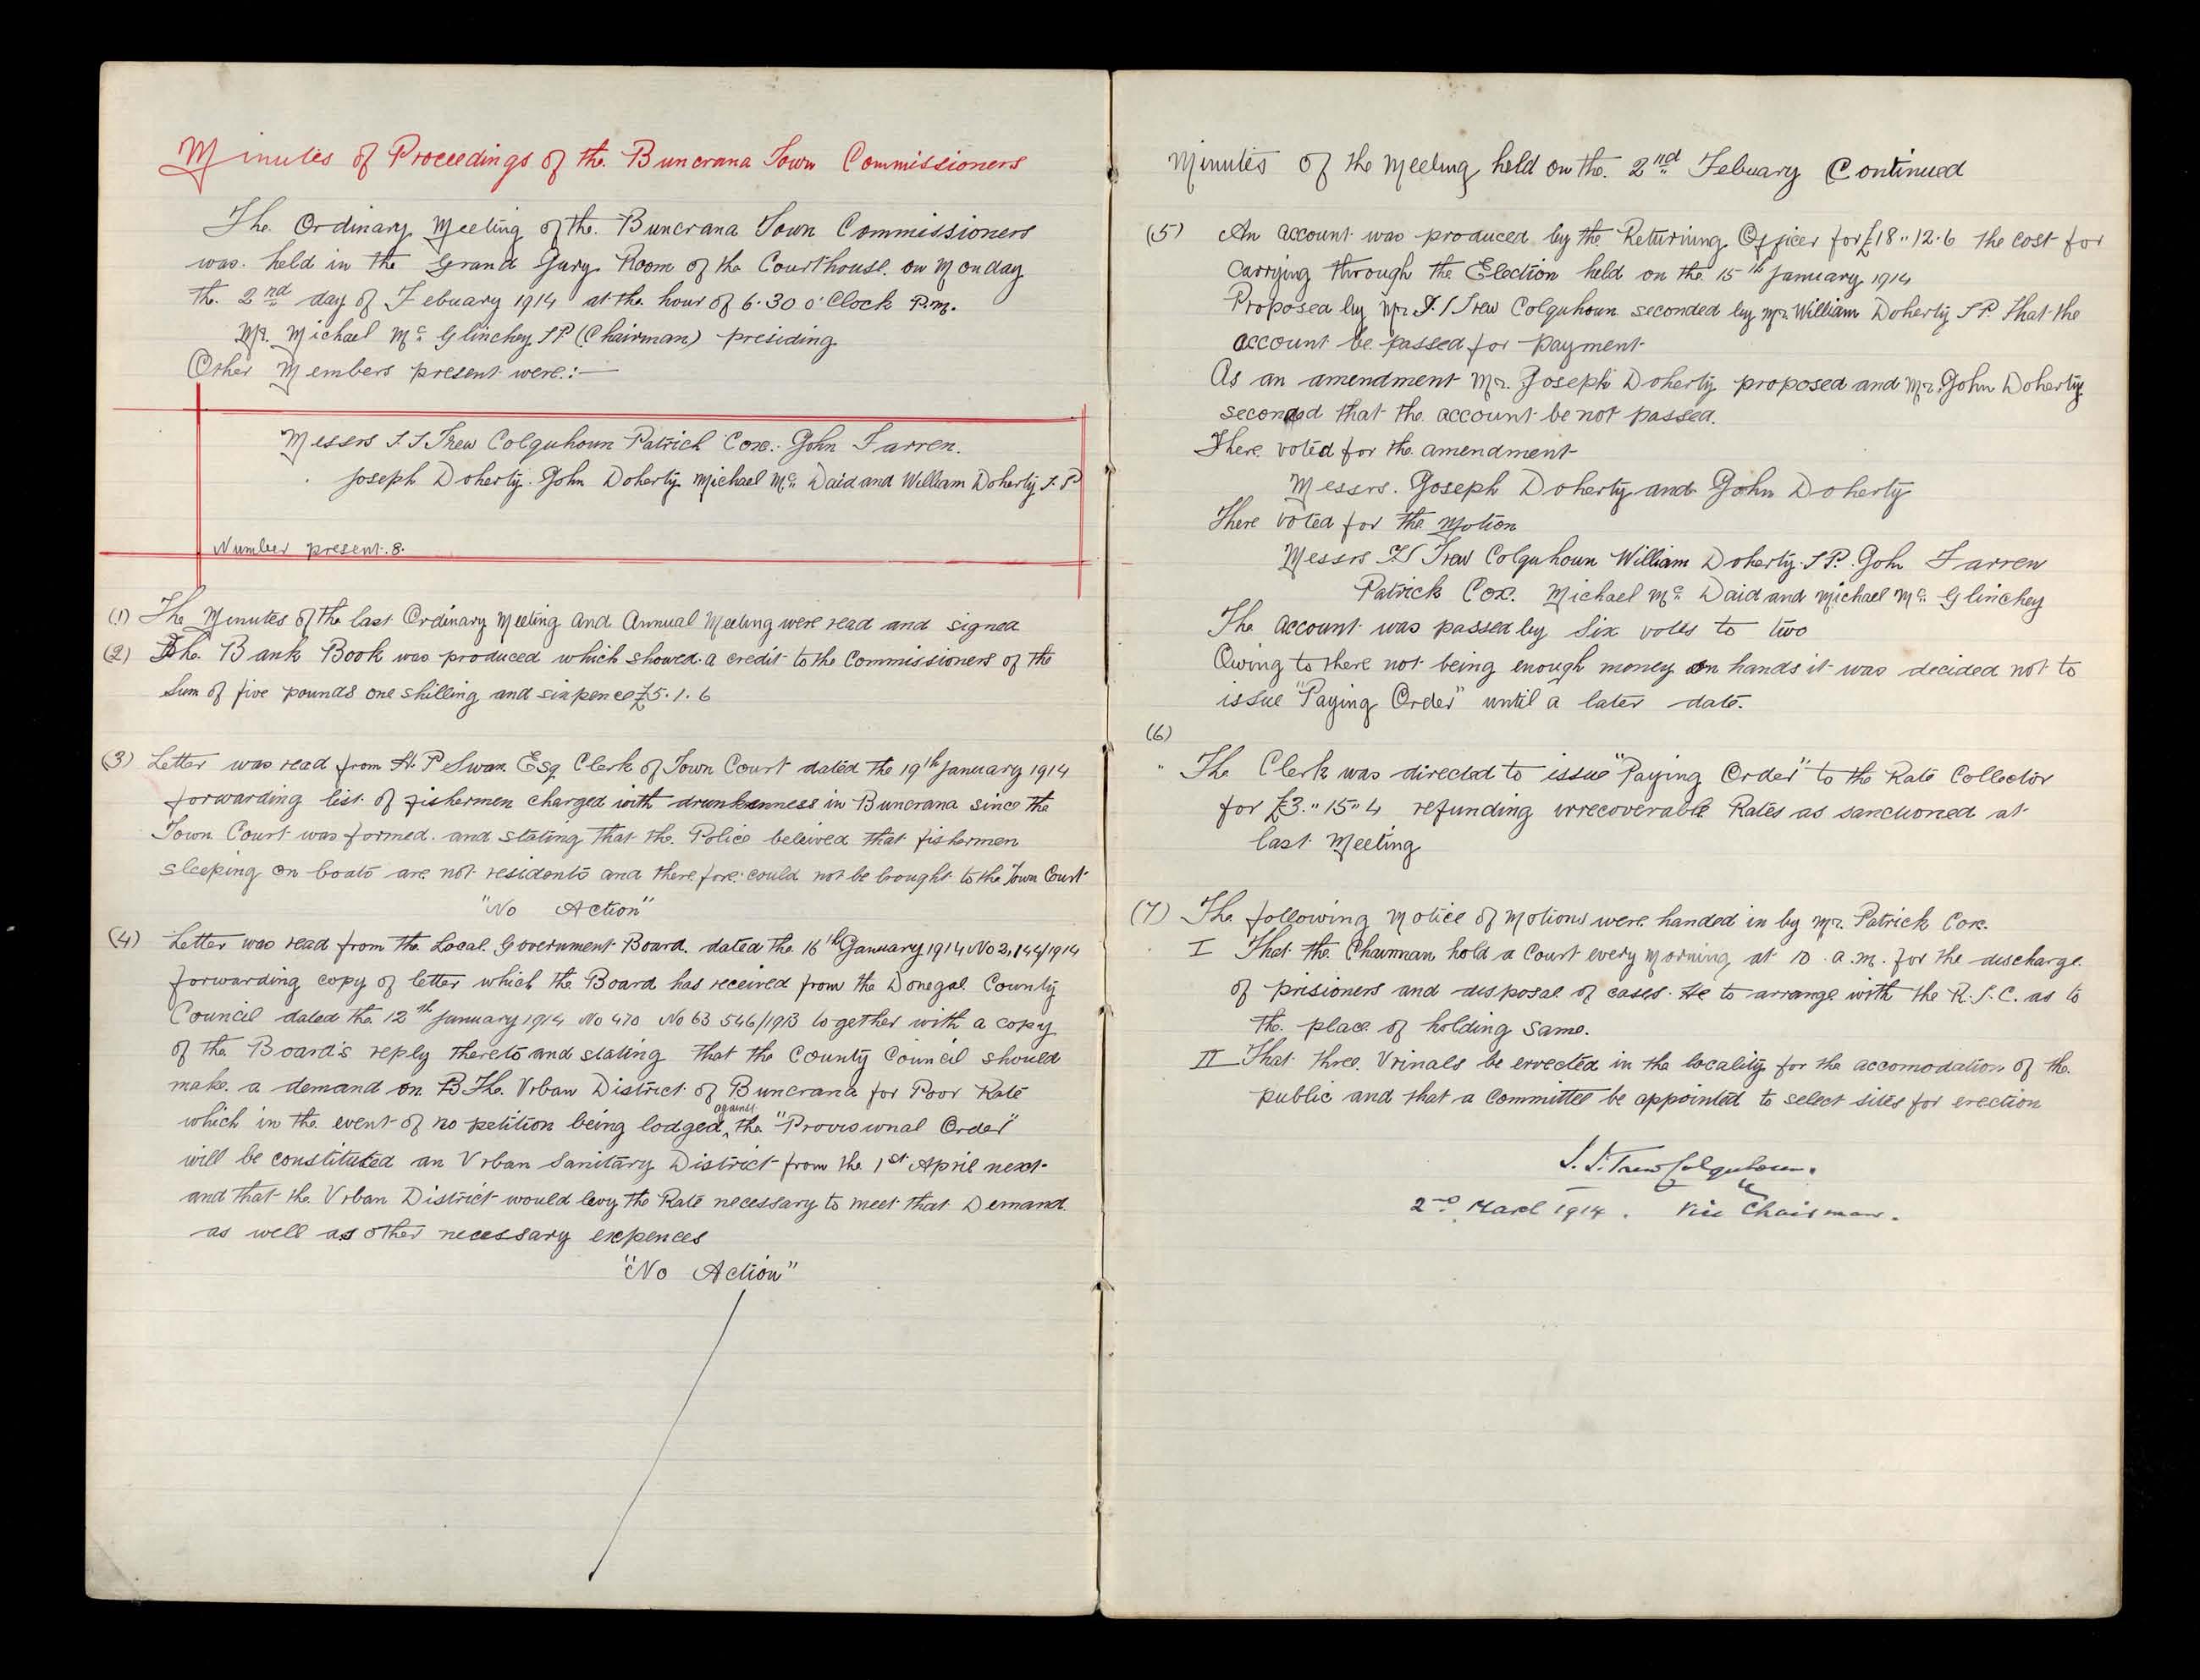 Minutes of Proceedings of the Buncrana Town Commissioners
The Ordinary Meeting of the Buncrana Town Commissioners
was held in the Grand Jury Room of the Courthouse on Monday
the 2nd day of Febuary 1914 at the hour of 6.30 o'Clock P.m.
Mr. Michael Mc Glinchey J P (Chairman) presiding
Other Members present were:—
Messrs Trew Colquhoun Patrick Cox. John Farren.
Joseph Doherty. John Doherty Michael Mc Daid and William Doherty J.P
Number present. 8.
(1) The Minutes of the last Ordinary Meeting and Annual Meeting were read and signed
(2) The Bank Book was produced which showed a credit to the Commissioners of the
Sum of five pounds one shilling and sixpence £5.1.6
(3) Letter was read from H. P Swan Esq Clerk of Town Court dated the 19th January 1914
forwarding list of fishermen charged with drunkenness in Buncrana since the
Town Court was formed and stating that the Police beleived that fishermen
sleeping on boats are not residents and therefore could not be bought to the Town Court
"No Action"
(4) Letter was read from the Local Government Board. dated the 16th January 1914 No 2,144/1914
forwarding copy of letter which the Board has received from the Donegal County
Council dated the 12th January 1914 No 470 No 63 546/1913 together with a copy
of the Board's reply thereto and stating that the County Council should
make a demand on The Urban District of Buncrana for Poor Rate
which in the event of no petition being lodged against the "Provisional Order"
will be constituted an Urban Sanitary District from the 1st April next
and that the Urban District would levy the Rate necessary to meet that Demand
as well as other necessary expences
"No Action"
Minutes of the Meeting held on the 2nd Febuary Continued
(5) An account was produced by the Returning Officer for £18"12.6 the cost for
Carrying through the Election held on the 15th January 1914
Proposed by Mr. Trew Colquhoun seconded by Mr. William Doherty J P. That the
account be passed for payment
As an amendment Mr. Joseph Doherty proposed and Mr. John Doherty
seconded that the account be not passed.
There voted for the amendment
Messrs. Joseph Doherty and John Doherty
There voted for the Motion
Messrs Trew Colquhoun William Doherty J P. John Farren
Patrick Cox. Michael Mc Daid and Michael Mc Glinchey
The account was passed by Six votes to two
Owing to there not being enough money on hands it was decided not to
issue "Paying Order" until a later date.
(6)
The Clerk was directed to issue "Paying Order" to the Rate Collector
for £3."15"4 refunding irrecoverable Rates as sanctioned at
last Meeting
(7) The following Notice of Motions were handed in by Mr. Patrick Cox.
I That the Chairman hold a Court every Morning at 10 a.m. for the discharge
of prisioners and disposal of cases. He to arrange with the R.I.C. as to
the place of holding same.
II That three Urinals be errected in the locality for the accomodation of the
public and that a Committee be appointed to select sites for erection
Trew Colquhoun.
2nd March 1914. Vice Chairman.